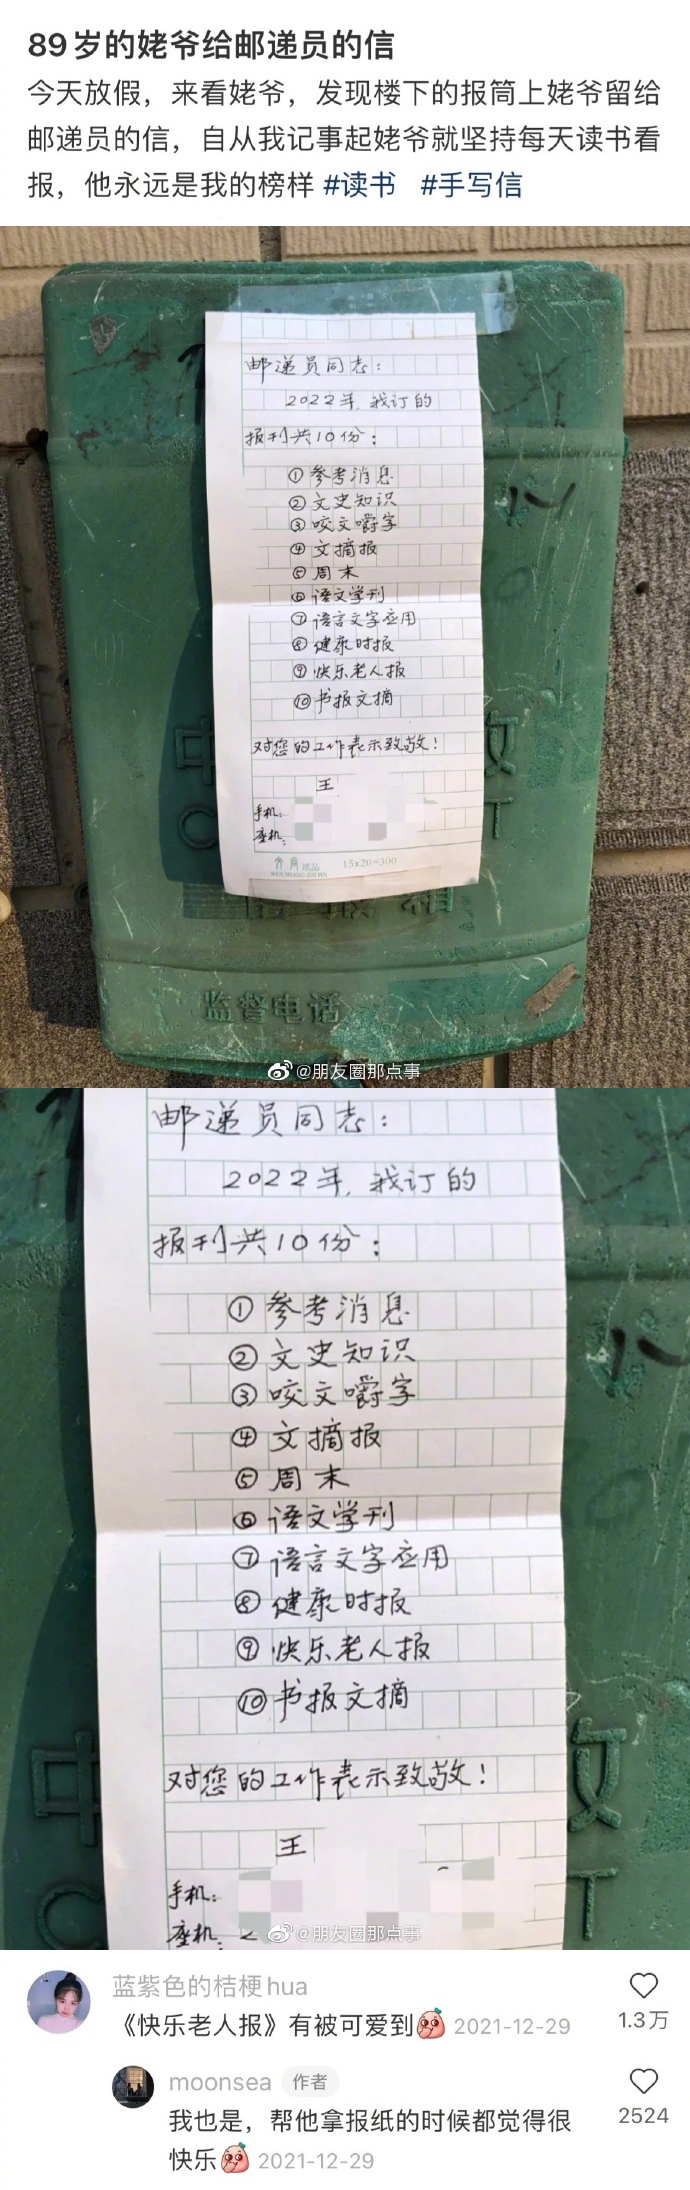 89岁的姥爷给邮递员的信
今天放假，来看姥爷，发现楼下的报筒上姥爷留给
邮递员的信，自从我记事起姥爷就坚持每天读书看
报，他永远是我的榜样 #读书 #手写信
邮递员同志：
2022年，我订的
报刊共10份：
①参考消息
②文史知识
③咬文嚼字
④文摘报
⑤周末
⑥语文学刊
⑦语言文字应用
⑧健康时报
⑨快乐老人报
⑩书报文摘
对您的工作表示致敬！
王
手机：
座机：
纸品
15x20=300
中
C
T
监督电话
@朋友圈那点事
邮递员同志：
2022年，我订的
报刊共10份：
①参考消息
②文史知识
③咬文嚼字
④文摘报
⑤周末
⑥语文学刊
⑦语言文字应用
⑧健康时报
⑨快乐老人报
⑩书报文摘
对您的工作表示致敬！
王
手机：
座机：
中
C
T
@朋友圈那点事
蓝紫色的桔梗hua
《快乐老人报》有被可爱到 2021-12-29
1.3万
moonsea 作者
我也是，帮他拿报纸的时候都觉得很
快乐 2021-12-29
2524